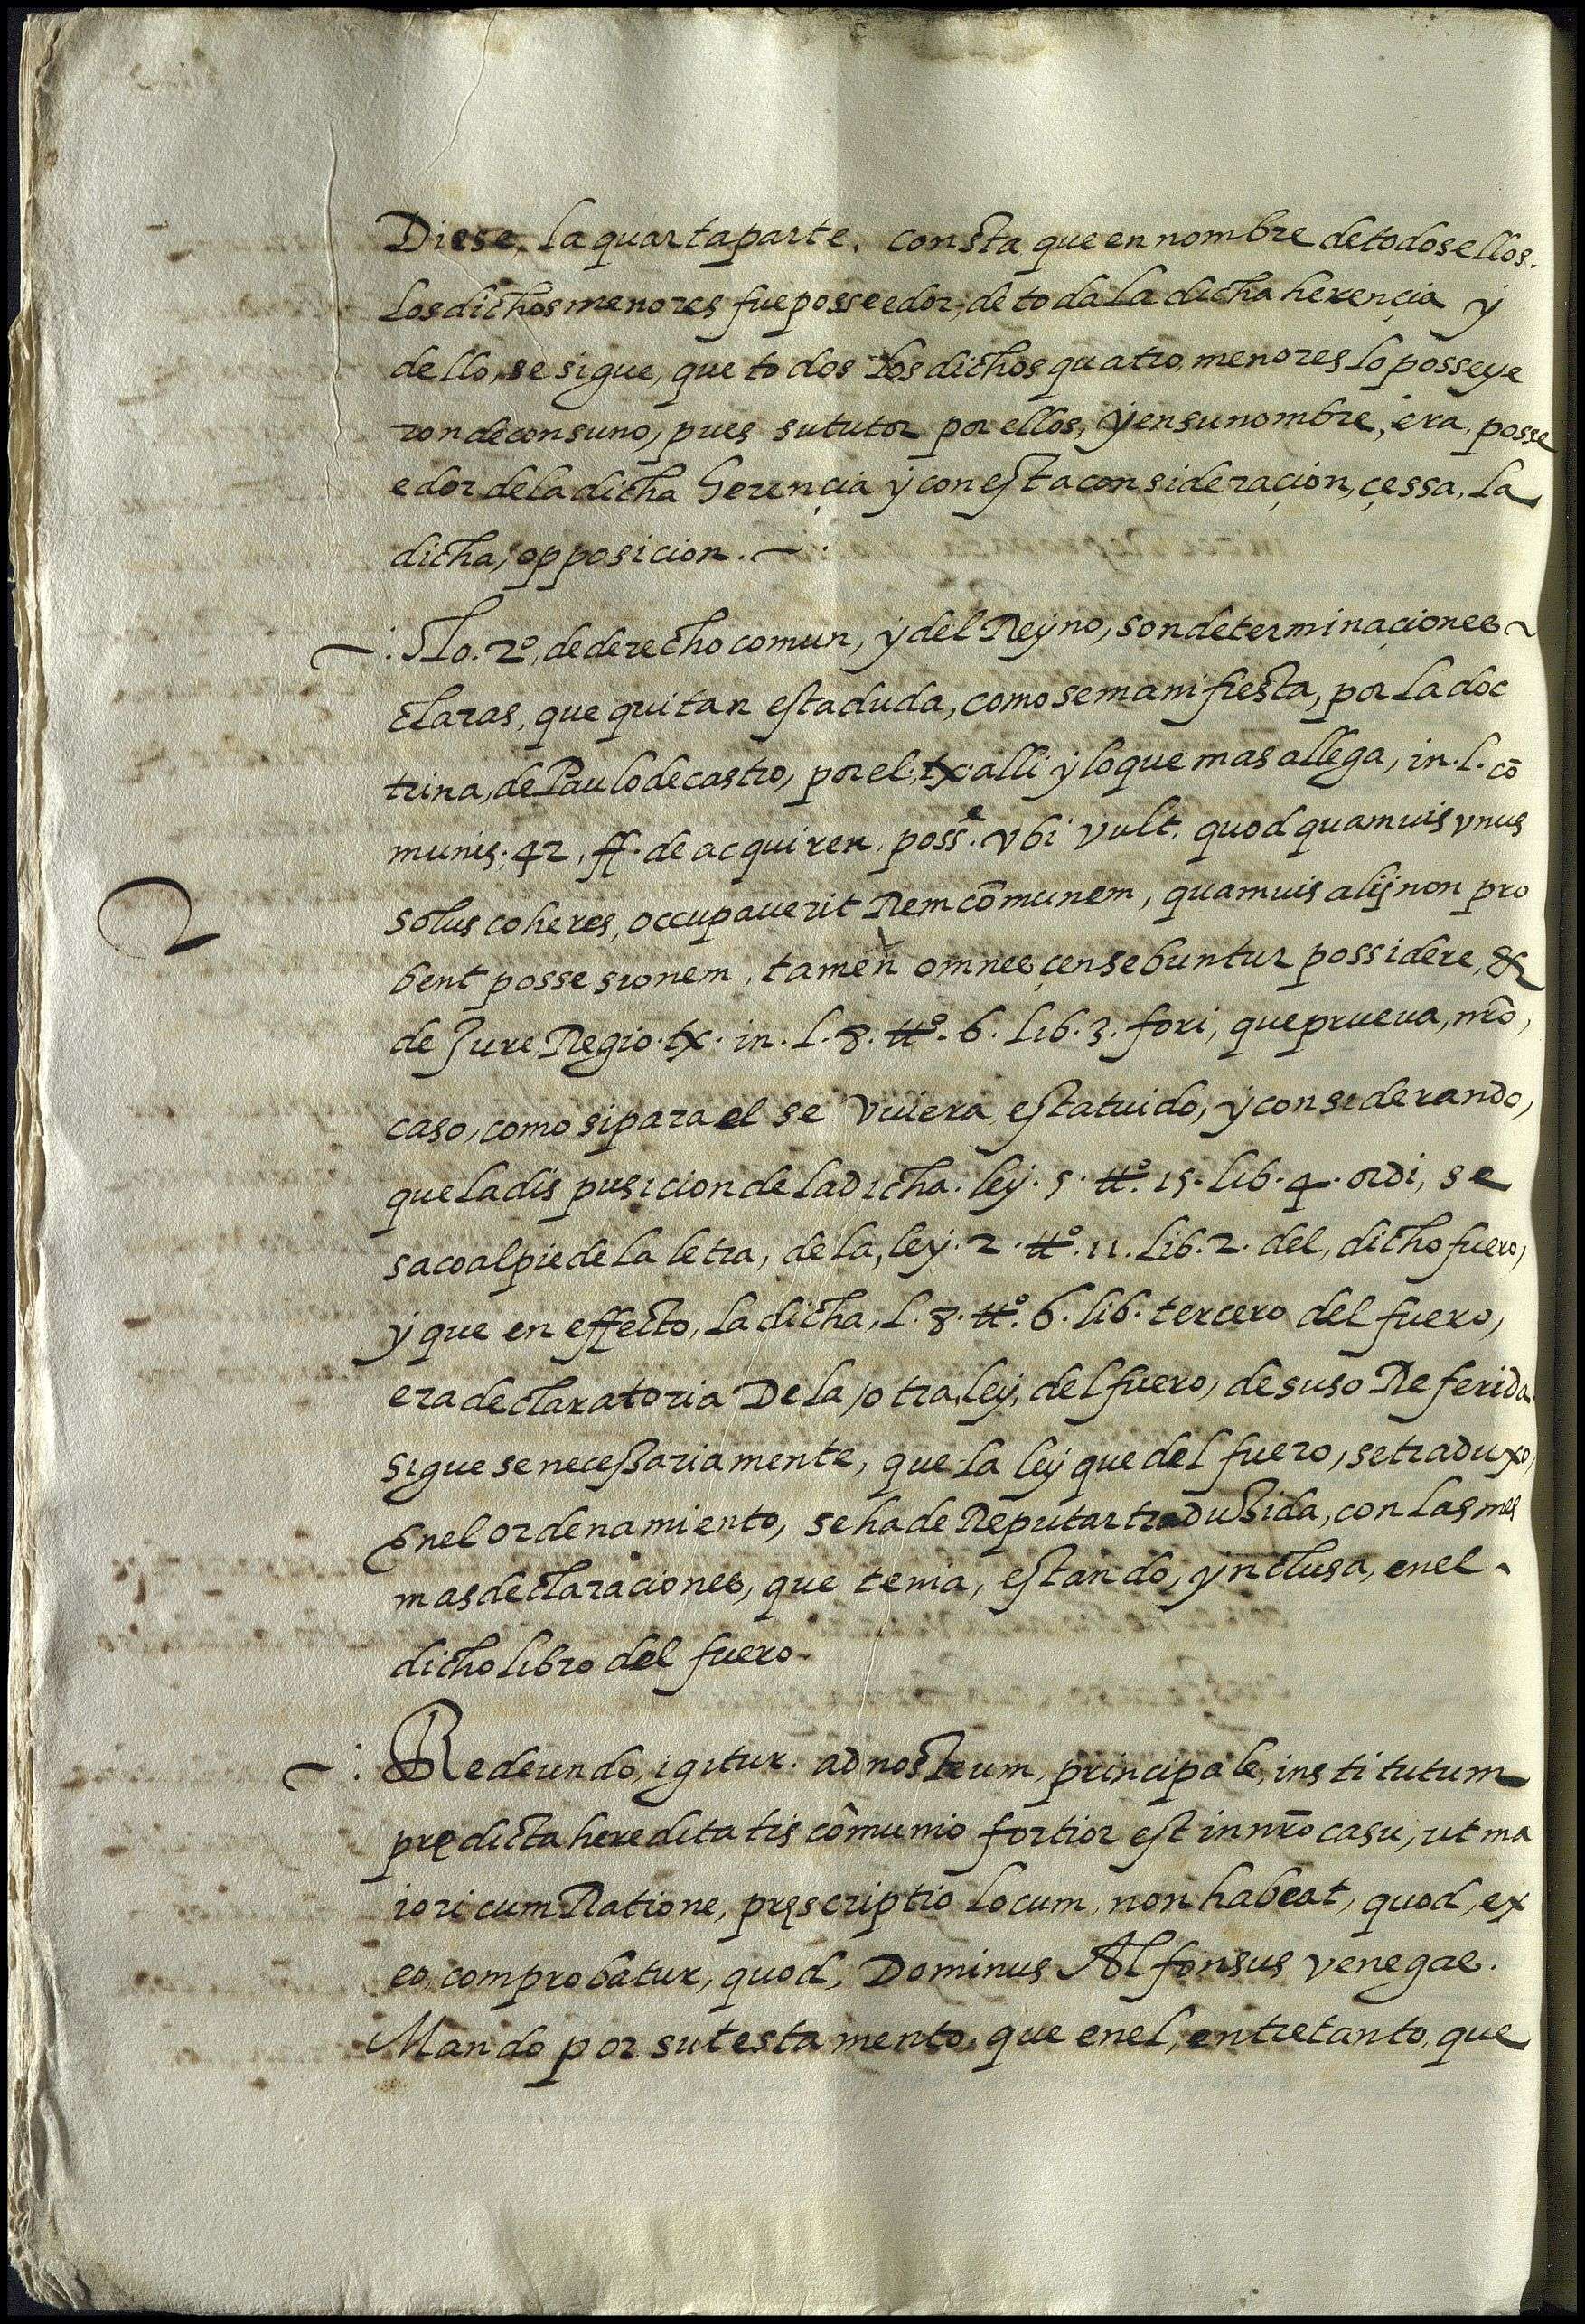 Diese, la quarta parte. consta que en nombre de todos ellos.
Los dichos menores fue posseedor, de toda la dicha herençia y
dello, se sigue, que todos los dichos quatro, menores lo posseye
ron de consuno, pues su tutor por ellos, y en su nombre, era, posse
edor de la dicha herençia y con esta consideraçion, çessa, la
dicha, opposicion.
Lo. 2º, de derecho comun, y del Reyno, son determinaçiones
claras, que quitan esta duda, como se manifiesta, por la doc
trina, de Paulo de castro, por el tx. alli y lo que mas allega, in. l. cō
munis. 42, ff. de acquiren. possᵉ. vbi vult. quod quamuis vnus
solus coheres, occupauerit Rem cōmunem, quamuis alij non pro
bent possesionem, tamen omnes çensebuntur possidere, &
de Jure Regio. tx. in. l. 8. ttº. 6. lib. 3. fori, que prueua, nrō,
caso, como si para el se vuiera estatuido, y considerando,
que la dispusicion de la dicha. ley. 5. ttº. 15. lib. 4. ordi, se
saco al pie de la letra, de la, ley. 2. ttº. 11. lib. 2. del, dicho fuero,
y que en effecto, la dicha, l. 8. ttº. 6. lib. tercero del fuero,
era declaratoria De la, otra, ley, del fuero, de suso Referida.
sigue se necessariamente, que la ley que del fuero, se traduxo,
En el ordenamiento, se ha de Reputar traduzida, con las mes
mas declaraciones, que tenia, estando, ynclusa, en el
dicho libro del fuero.
2
Redeundo, igitur. ad nostrum, principale, institutum
prędicta hereditatis cōmunio fortior est in nrō casu, ut ma
iori cum Ratione, pręscriptio locum, non habeat, quod, ex
eo, comprobatur, quod, Dominus Alfonsus venegas.
Mando por su testamento, que en el, entretanto, que